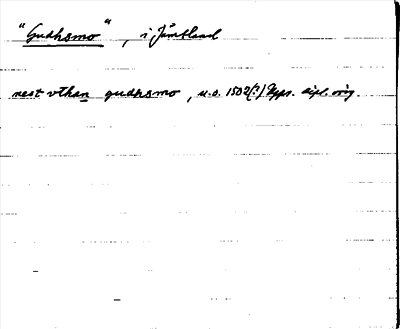 "Gudhsmo", i Jämtland
nest vthan gudhsmo, u.å. 1502(?) Upps. dipl. orig.